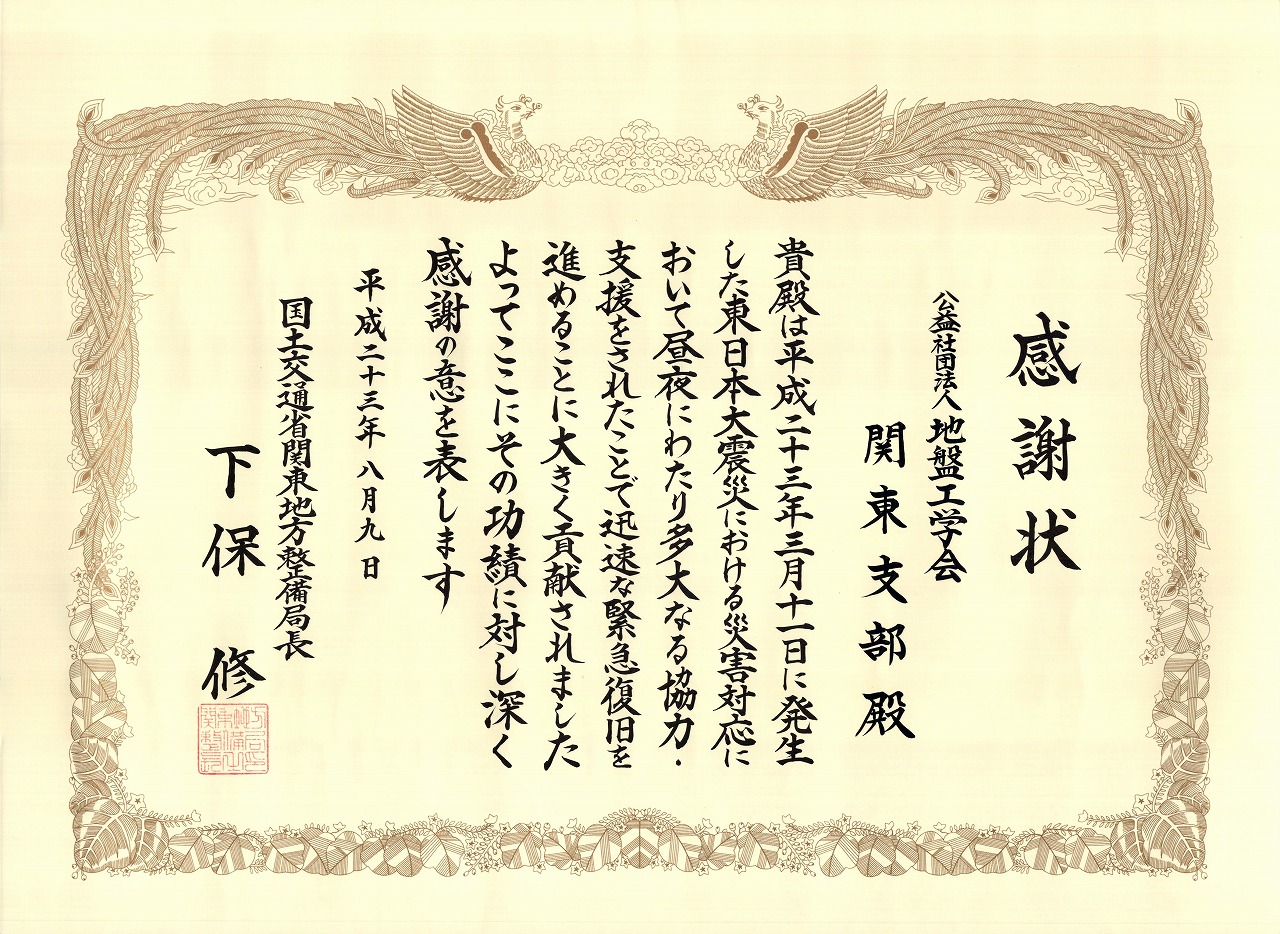 感謝状
公益社団法人 地盤工学会
関東支部殿
貴殿は平成二十三年三月十一日に発生
した東日本大震災における災害対応に
おいて昼夜にわたり多大なる協力・
支援をされたことで迅速な緊急復旧を
進めることに大きく貢献されました
よってここにその功績に対し深く
感謝の意を表します
平成二十三年八月九日
国土交通省関東地方整備局長
下保修